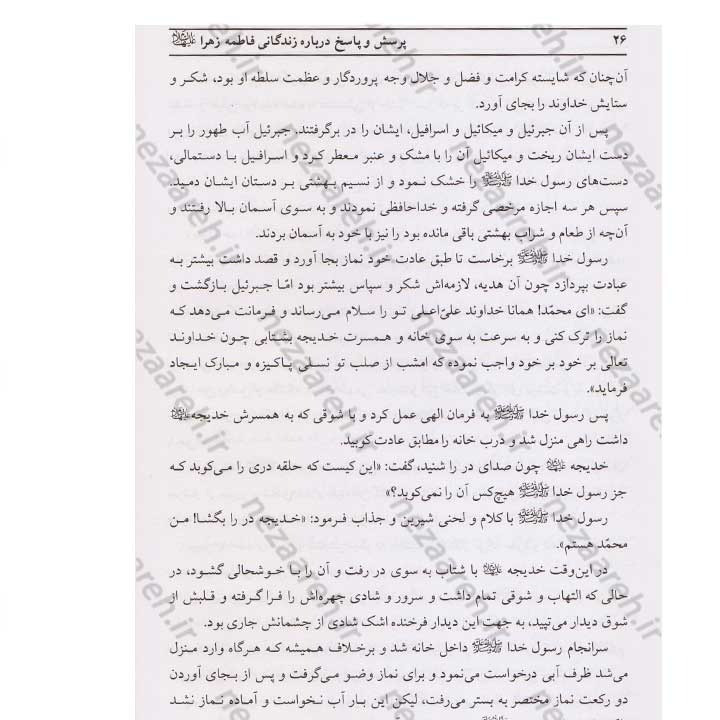 ۲۶ پرسش و پاسخ درباره زندگانی فاطمه زهرا علیها السلام
آن‌چنان که شایسته کرامت و فضل و جلال وجه پروردگار و عظمت سلطه او بود، شکر و
ستایش خداوند را بجای آورد.
پس از آن جبرئیل و میکائیل و اسرافیل، ایشان را در برگرفتند، جبرئیل آب طهور را بر
دست ایشان ریخت و میکائیل آن را با مشک و عنبر معطر کرد و اسرافیل با دستمالی،
دست‌های رسول خدا ﷺ را خشک نمود و از نسیم بهشتی بر دستان ایشان دمید.
سپس هر سه اجازه مرخصی گرفته و خداحافظی نمودند و به سوی آسمان بالا رفتند و
آن‌چه از طعام و شراب بهشتی باقی مانده بود را نیز با خود به آسمان بردند.
رسول خدا ﷺ برخاست تا طبق عادت خود نماز بجا آورد و قصد داشت بیشتر به
عبادت بپردازد چون آن هدیه، لازمه‌اش شکر و سپاس بیشتر بود امّا جبرئیل بازگشت و
گفت: «ای محمّد! همانا خداوند علیّ‌اعلی تو را سلام می‌رساند و فرمانت می‌دهد که
نماز را ترک کنی و به سرعت به سوی خانه و همسرت خدیجه بشتابی چون خداوند
تعالی بر خود بر خود واجب نموده که امشب از صلب تو نسلی پاکیزه و مبارک ایجاد
فرماید».
پس رسول خدا ﷺ به فرمان الهی عمل کرد و با شوقی که به همسرش خدیجه علیها السلام
داشت راهی منزل شد و درب خانه را مطابق عادت کوبید.
خدیجه علیها السلام چون صدای در را شنید، گفت: «این کیست که حلقه دری را می‌کوبد که
جز رسول خدا ﷺ هیچ‌کس آن را نمی‌کوبد؟»
رسول خدا ﷺ با کلام و لحنی شیرین و جذاب فرمود: «خدیجه در را بگشا! من
محمّد هستم».
در این‌وقت خدیجه علیها السلام با شتاب به سوی در رفت و آن را با خوشحالی گشود، در
حالی که التهاب و شوقی تمام داشت و سرور و شادی چهره‌اش را فرا گرفته و قلبش از
شوق دیدار می‌تپید، به جهت این دیدار فرخنده اشک شادی از چشمانش جاری بود.
سرانجام رسول خدا ﷺ داخل خانه شد و برخلاف همیشه که هرگاه وارد منزل
می‌شد ظرف آبی درخواست می‌نمود و برای نماز وضو می‌گرفت و پس از بجای آوردن
دو رکعت نماز مختصر به بستر می‌رفت، لیکن این بار آب نخواست و آماده نماز نشد
nezaareh.ir